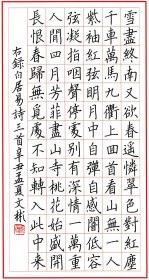 雪盡終南又欲春遙憐翠色對紅塵
千車萬馬九衢上回首看山無一人
紫袖紅弦明月中自彈自感闇低容
弦凝指咽聲停處別有深情一萬重
人間四月芳菲盡山寺桃花始盛開
長恨春歸無覓處不知轉入此中來
右録白居易詩三首辛丑孟夏文彬